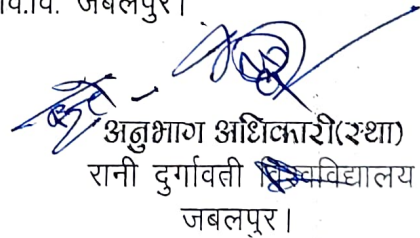 वि.वि. जबलपुर।
अनुभाग अधिकारी(स्था)
रानी दुर्गावती विश्वविद्यालय
जबलपुर।